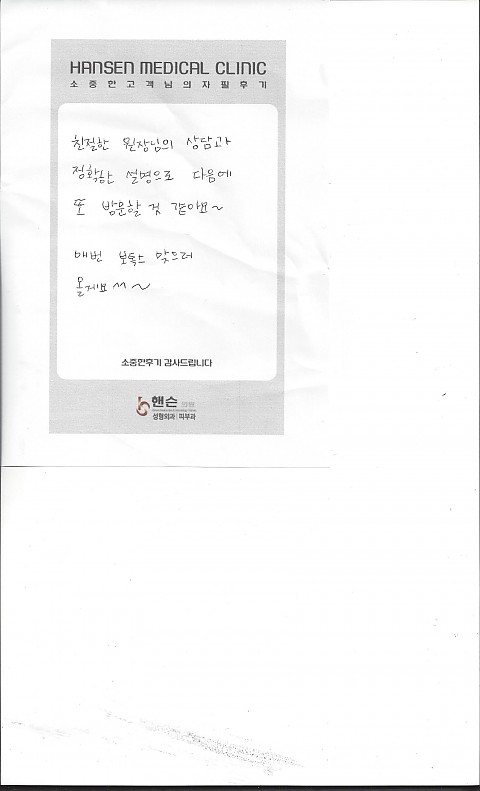 HANSEN MEDICAL CLINIC
소중한고객님의자필후기
친절한 원장님의 상담과
정확한 설명으로 다음에
또 방문할 것 같아요~
매번 보톡스 맞으러
올게요 ^^ ~
소중한후기 감사드립니다
핸슨 의원
성형외과 | 피부과